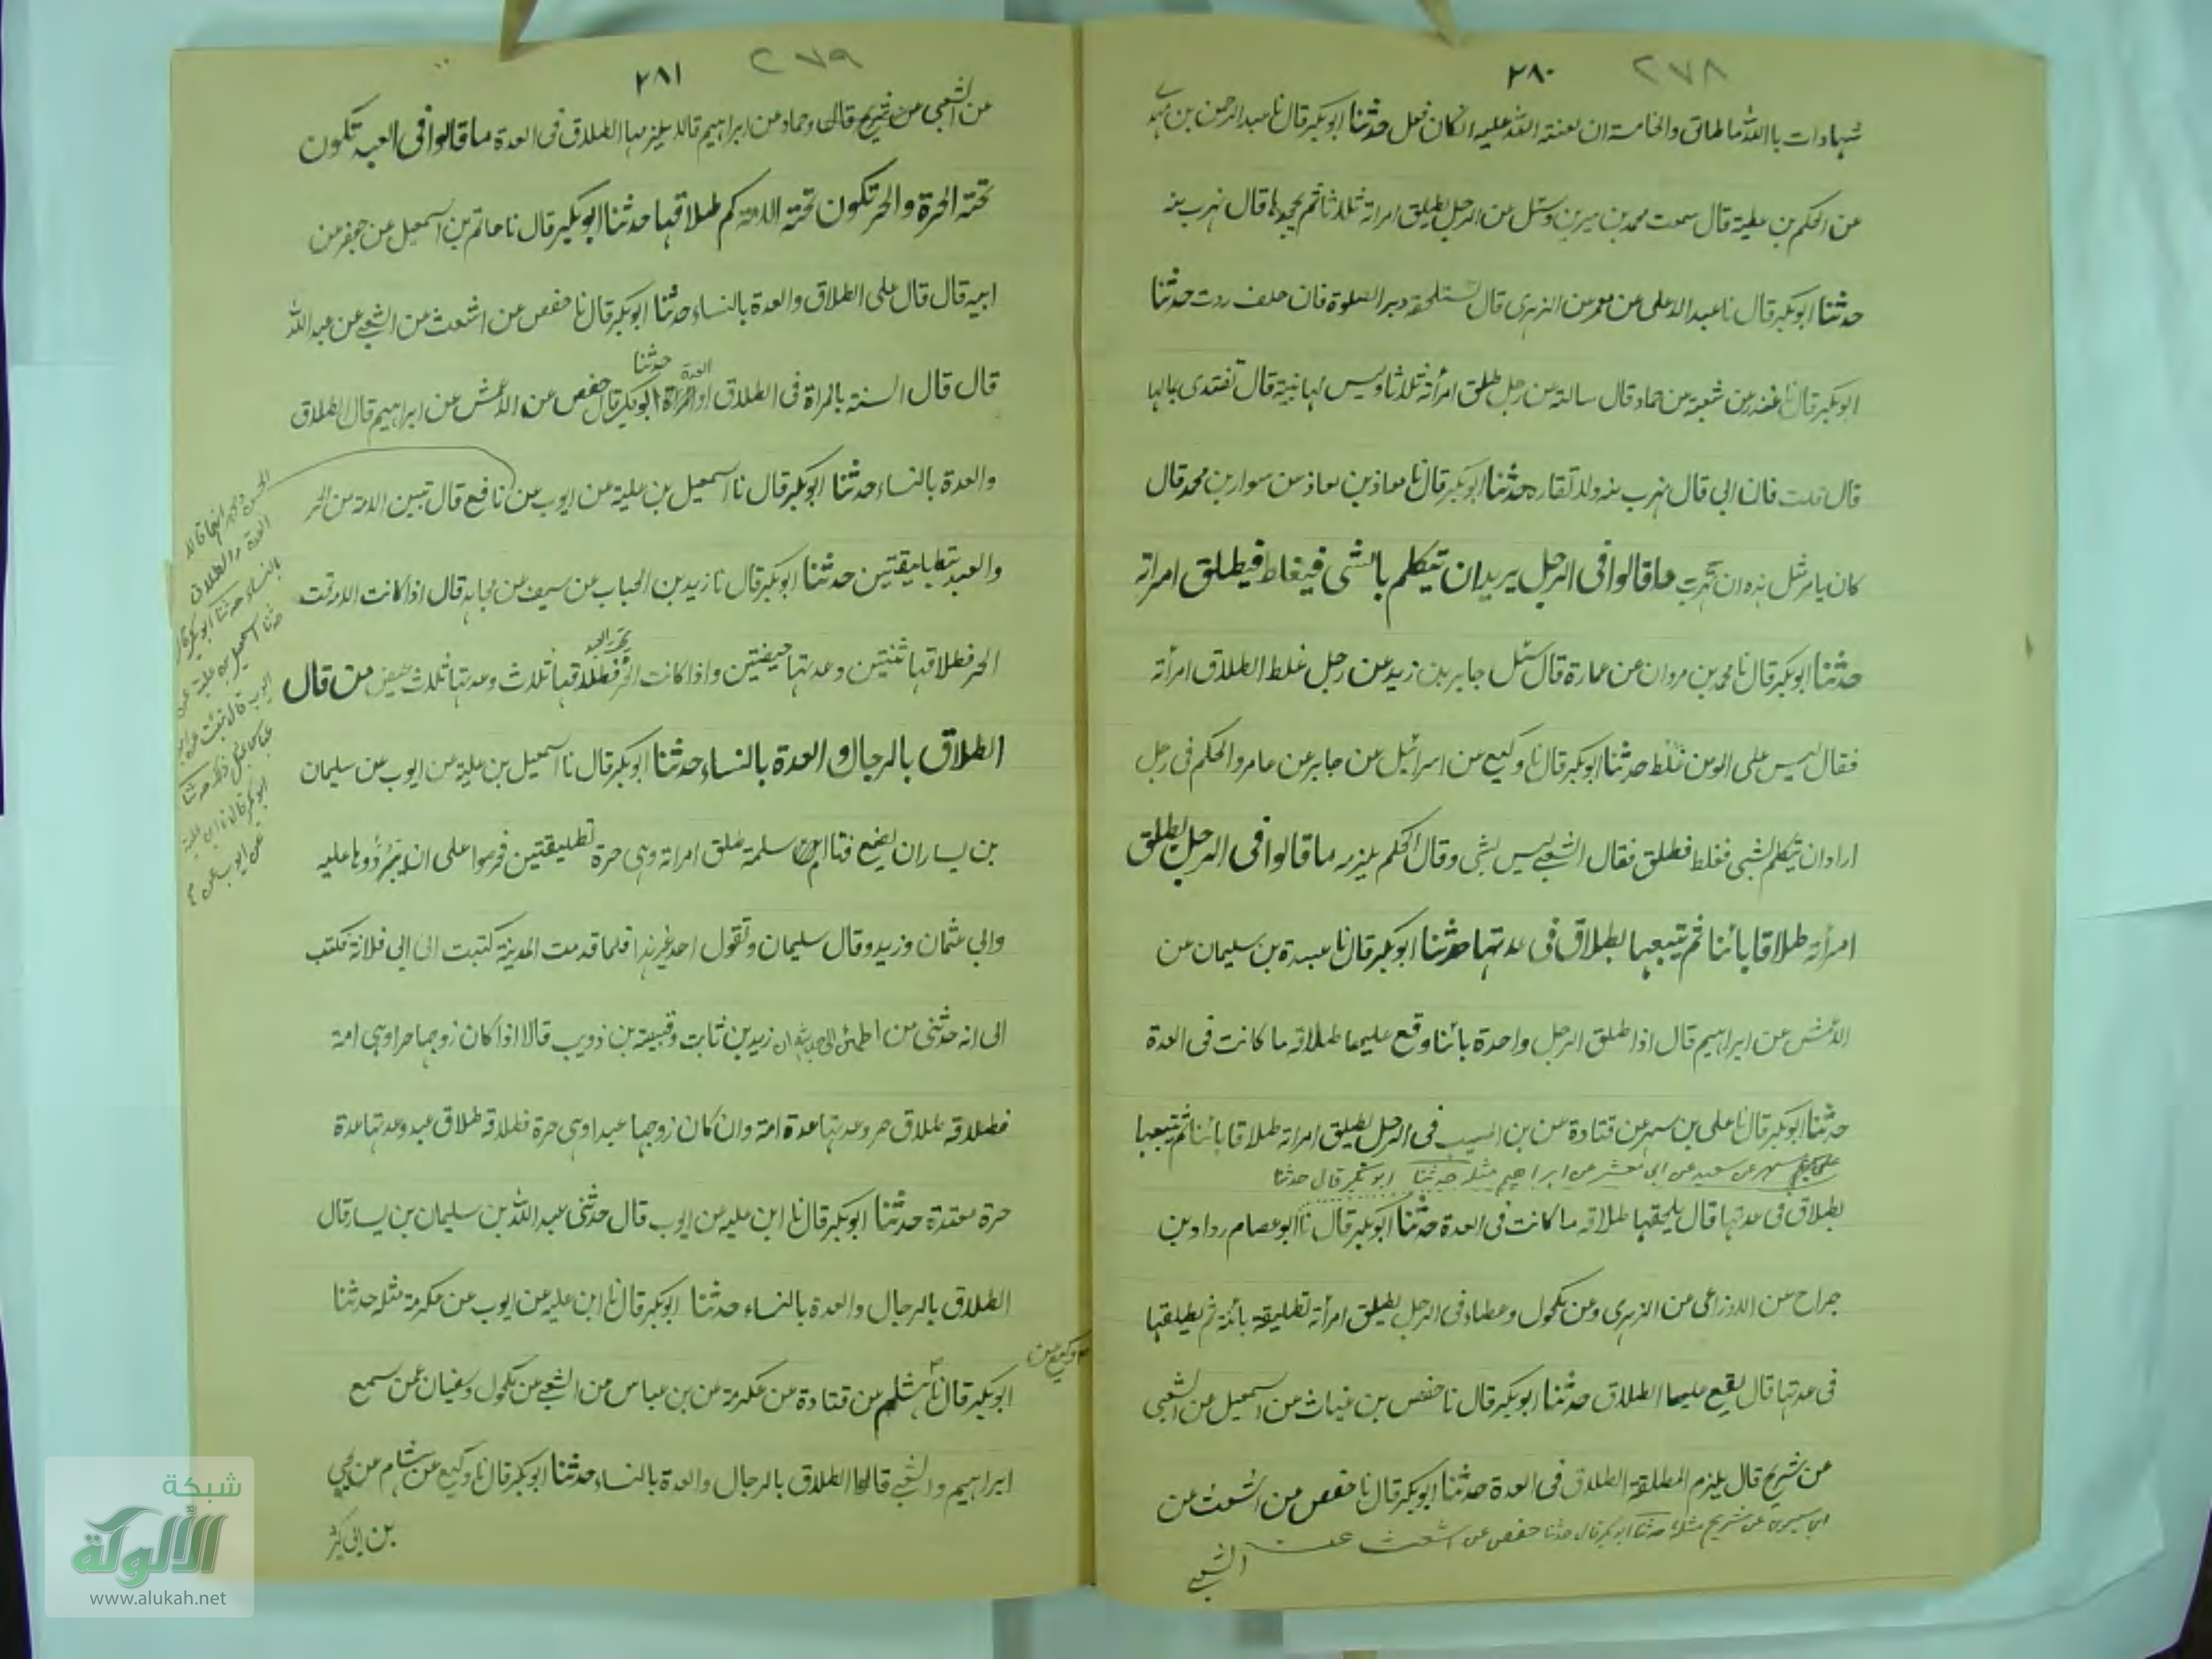 ٢٧٨ ٢٨٠
شهادات بالله ما طلق والخامسة ان لعنة الله عليه ان كان فعل حدثنا ابوبكر قال نا عبد الرحمن بن مهدى
عن الحكم بن علية قال سمعت محمد بن سيرين وسئل عن الرجل يطلق امراته ثلاثا ثم يجحدها قال تهرب منه
حدثنا ابوبكر قال نا عبد الاعلى عن معمر عن الزهرى قال تستحلفه دبر الصلوة فان حلف ردت حدثنا
ابوبكر قال نا غندر عن شعبة عن حماد قال سالته عن رجل طلق امرأته ثلاثا وليس لها بينة قال تفتدى بمالها
قال قلت فان ابى قال تهرب منه ولا تقاره حدثنا ابوبكر قال نا معاذ بن معاذ عن سوار بن محمد قال
كان يامر مثل هذه ان تهرب ما قالوا فى الرجل يريد ان يتكلم بالشى فيغلط فيطلق امراته
حدثنا ابوبكر قال نا محمد بن مروان عن عمارة قال سئل جابر بن زيد عن رجل غلط الطلاق امرأته
فقال ليس على المومن غلط حدثنا ابوبكر قال نا وكيع عن اسرائيل عن جابر عن عامر والحكم فى رجل
اراد ان يتكلم بشى فغلط فطلق فقال الشعبى ليس بشى وقال الحكم يلزمه ما قالوا فى الرجل يطلق
امرأته طلاقا بائنا ثم يتبعها بطلاق فى عدتها حدثنا ابوبكر قال نا عبدة بن سليمان عن
الاعمش عن ابراهيم قال اذا طلق الرجل واحدة بائنا وقع عليها طلاقه ما كانت فى العدة
حدثنا ابوبكر قال نا على بن مسهر عن قتادة عن بن المسيب فى الرجل يطلق امراته طلاقا بائنا ثم يتبعها
على بن مسهر عن سعيد عن ابى معشر عن ابراهيم مثله حدثنا ابوبكر قال حدثنا
بطلاق فى عدتها قال يلحقها طلاقه ما كانت فى العدة حدثنا ابوبكر قال نا ابو عصام رواد بن
جراح عن الاوزاعى عن الزهرى وعن مكحول وعطاء فى الرجل يطلق امرأته تطليقة بائنة ثم يطلقها
فى عدتها قال يقع عليها الطلاق حدثنا ابوبكر قال نا حفص بن غياث عن اسمعيل عن الشعبى
عن شريح قال يلزم المطلقة الطلاق فى العدة حدثنا ابوبكر قال نا حفص عن اشعث عن
ابن سيرين عن شريح مثله حدثنا ابوبكر قال حدثنا حفص عن اشعث عن الشعبى
٢٧٩ ٢٨١
عن الشعبى عن شريح قال وحماد عن ابراهيم قالا يلزمها الطلاق فى العدة ما قالوا فى العبد تكون
تحته الحرة والحر تكون تحته الامة كم طلاقها حدثنا ابوبكر قال نا حاتم بن اسمعيل عن جعفر عن
ابيه قال قال على الطلاق والعدة بالنساء حدثنا ابوبكر قال نا حفص عن اشعث عن الشعبى عن عبد الله
العدة حدثنا
قال قال السنة بالمراة فى الطلاق او المراة ابوبكر قال حفص عن الاعمش عن ابراهيم قال الطلاق
والعدة بالنساء حدثنا ابوبكر قال نا اسمعيل بن علية عن ايوب عن نافع قال تبين الامة من الحر
والعبد بتطليقتين حدثنا ابوبكر قال نا زيد بن الحباب عن سيف عن مجاهد قال اذا كانت الامة تحت
تحت العبد
الحر فطلاقها ثنتين وعدتها حيضتين واذا كانت الحر فطلاقها ثلاث وعدتها ثلاث حيض من قال
الطلاق بالرجال والعدة بالنساء حدثنا ابوبكر قال نا اسمعيل بن علية عن ايوب عن سليمان
بن يسار ان نفيع فتا ام سلمة طلق امراته وهى حرة تطليقتين فحرصوا على ان يردوها عليه
وابى عثمان وزيد وقال سليمان وتقول احد غير هذا فلما قدمت المدينة كتبت الى ابى قلابة فكتب
الى انه حدثنى من اطمئن الى حديثه ان زيد بن ثابت وقبيصة بن ذويب قالا اذا كان زوجها حرا وهى امة
فطلاقه طلاق حر وعدتها عدة امة وان كان زوجها عبدا وهى حرة فطلاقه طلاق عبد وعدتها عدة
حرة معتدة حدثنا ابوبكر قال نا ابن علية عن ايوب قال حدثنى عبد الله بن سليمان بن يسار قال
الطلاق بالرجال والعدة بالنساء حدثنا ابوبكر قال نا ابن علية عن ايوب عن عكرمة مثله حدثنا
وكيع عن
ابوبكر قال نا هشام عن قتادة عن عكرمة عن بن عباس عن الشعبى عن مكحول وسفيان عمن سمع
ابراهيم والشعبى قالوا الطلاق بالرجال والعدة بالنساء حدثنا ابوبكر قال نا وكيع عن هشام عن يحيى
بن ابى كثير
الحسن انهما قالا
العدة والطلاق
بالنساء حدثنا ابوبكر قال
حدثنا اسمعيل بن علية عن
ايوب قال نبئت عن ابن
عباس مثل ذلك حدثنا
ابوبكر قال نا ابن علية
عن ايوب عن
شبكة
الألوكة
www.alukah.net